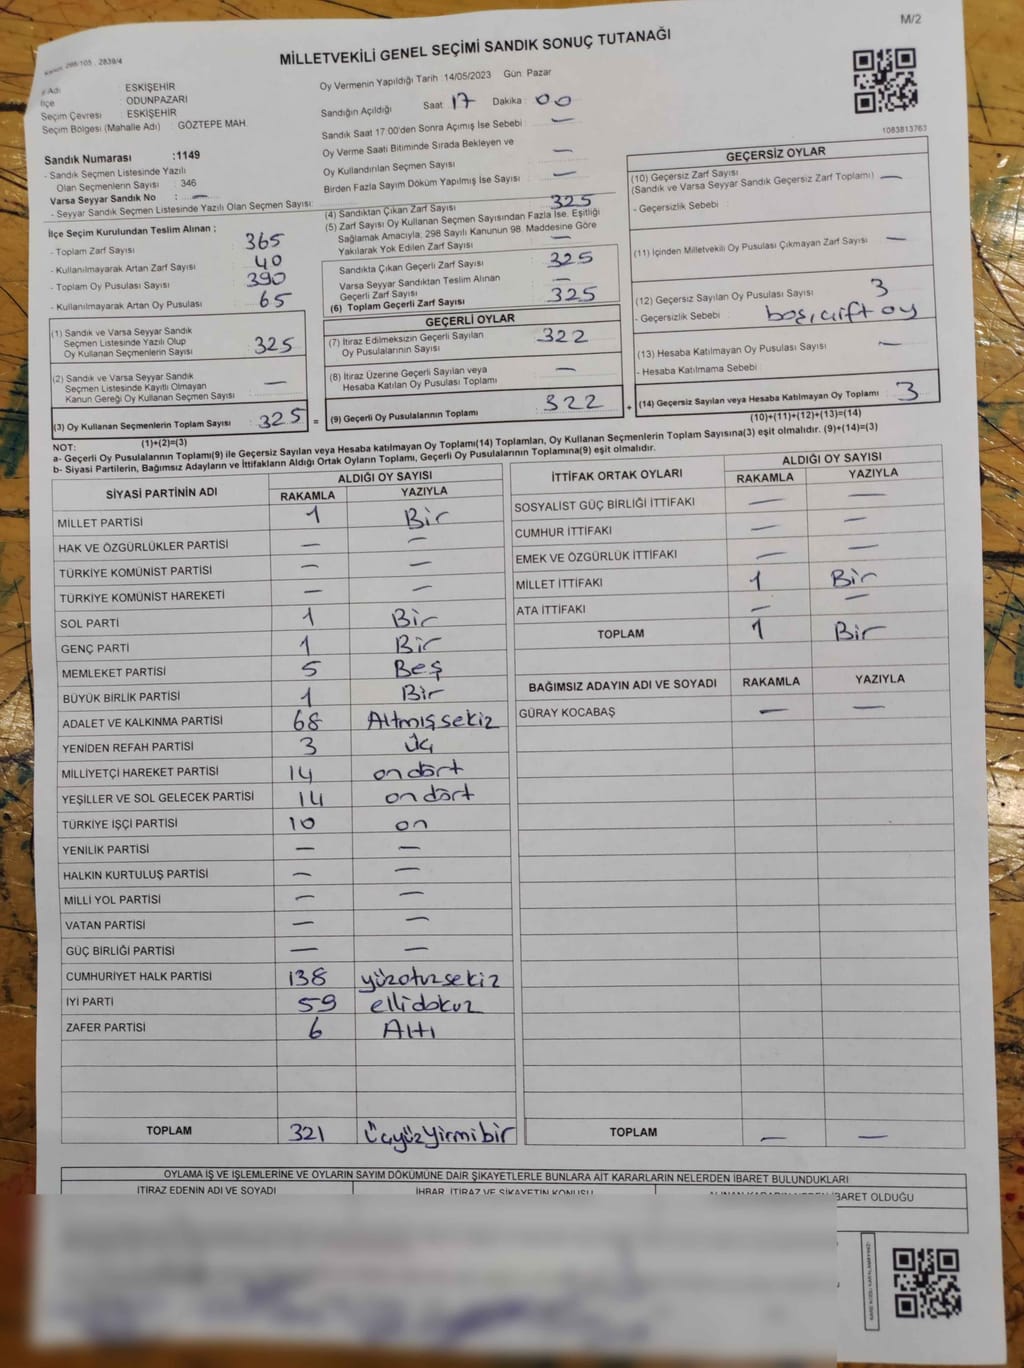 M/2
MİLLETVEKİLİ GENEL SEÇİMİ SANDIK SONUÇ TUTANAĞI
298/105 . 2839/4
Adı ESKİŞEHİR
İlçe : ODUNPAZARI
Seçim Çevresi : ESKİŞEHİR
Seçim Bölgesi (Mahalle Adı) : GÖZTEPE MAH.
Sandık Numarası :1149
- Sandık Seçmen Listesinde Yazılı
Olan Seçmenlerin Sayısı : 346
Varsa Seyyar Sandık No : —
- Seyyar Sandık Seçmen Listesinde Yazılı Olan Seçmen Sayısı:
Oy Vermenin Yapıldığı Tarih :14/05/2023 Gün: Pazar
Sandığın Açıldığı Saat: 17 Dakika : 00
Sandık Saat 17:00'den Sonra Açımış İse Sebebi : —
Oy Verme Saati Bitiminde Sırada Bekleyen ve
Oy Kullandırılan Seçmen Sayısı : —
Birden Fazla Sayım Döküm Yapılmış İse Sayısı : —
1083813763
İlçe Seçim Kurulundan Teslim Alınan ;
- Toplam Zarf Sayısı : 365
- Kullanılmayarak Artan Zarf Sayısı : 40
- Toplam Oy Pusulası Sayısı : 390
- Kullanılmayarak Artan Oy Pusulası : 65
(1) Sandık ve Varsa Seyyar Sandık
Seçmen Listesinde Yazılı Olup
Oy Kullanan Seçmenlerin Sayısı : 325
(2) Sandık ve Varsa Seyyar Sandık
Seçmen Listesinde Kayıtlı Olmayan
Kanun Gereği Oy Kullanan Seçmen Sayısı : —
(3) Oy Kullanan Seçmenlerin Toplam Sayısı : 325 =
(1)+(2)=(3)
(4) Sandıktan Çıkan Zarf Sayısı : 325
(5) Zarf Sayısı Oy Kullanan Seçmen Sayısından Fazla İse, Eşitliği
Sağlamak Amacıyla, 298 Sayılı Kanunun 98. Maddesine Göre
Yakılarak Yok Edilen Zarf Sayısı : —
Sandıkta Çıkan Geçerli Zarf Sayısı : 325
Varsa Seyyar Sandıktan Teslim Alınan
Geçerli Zarf Sayısı : —
(6) Toplam Geçerli Zarf Sayısı : 325
GEÇERLİ OYLAR
(7) İtiraz Edilmeksizin Geçerli Sayılan
Oy Pusulalarının Sayısı : 322
(8) İtiraz Üzerine Geçerli Sayılan veya
Hesaba Katılan Oy Pusulası Toplamı : —
(9) Geçerli Oy Pusulalarının Toplamı : 322 +
GEÇERSİZ OYLAR
(10) Geçersiz Zarf Sayısı
(Sandık ve Varsa Seyyar Sandık Geçersiz Zarf Toplamı) : —
- Geçersizlik Sebebi :
(11) İçinden Milletvekili Oy Pusulası Çıkmayan Zarf Sayısı : —
(12) Geçersiz Sayılan Oy Pusulası Sayısı : 3
- Geçersizlik Sebebi : boş, çift oy
(13) Hesaba Katılmayan Oy Pusulası Sayısı : —
- Hesaba Katılmama Sebebi :
(14) Geçersiz Sayılan veya Hesaba Katılmayan Oy Toplamı : 3
(10)+(11)+(12)+(13)=(14)
NOT:
a- Geçerli Oy Pusulalarının Toplamı(9) ile Geçersiz Sayılan veya Hesaba katılmayan Oy Toplamı(14) Toplamları, Oy Kullanan Seçmenlerin Toplam Sayısına(3) eşit olmalıdır. (9)+(14)=(3)
b- Siyasi Partilerin, Bağımsız Adayların ve İttifakların Aldığı Ortak Oyların Toplamı, Geçerli Oy Pusulalarının Toplamına(9) eşit olmalıdır.
SİYASİ PARTİNİN ADI ALDIĞI OY SAYISI
RAKAMLA YAZIYLA
MİLLET PARTİSİ 1 Bir
HAK VE ÖZGÜRLÜKLER PARTİSİ — —
TÜRKİYE KOMÜNİST PARTİSİ — —
TÜRKİYE KOMÜNİST HAREKETİ — —
SOL PARTİ 1 Bir
GENÇ PARTİ 1 Bir
MEMLEKET PARTİSİ 5 Beş
BÜYÜK BİRLİK PARTİSİ 1 Bir
ADALET VE KALKINMA PARTİSİ 68 Altmışsekiz
YENİDEN REFAH PARTİSİ 3 Üç
MİLLİYETÇİ HAREKET PARTİSİ 14 on dört
YEŞİLLER VE SOL GELECEK PARTİSİ 14 on dört
TÜRKİYE İŞÇİ PARTİSİ 10 on
YENİLİK PARTİSİ — —
HALKIN KURTULUŞ PARTİSİ — —
MİLLİ YOL PARTİSİ — —
VATAN PARTİSİ — —
GÜÇ BİRLİĞİ PARTİSİ — —
CUMHURİYET HALK PARTİSİ 138 yüzotuzsekiz
İYİ PARTİ 59 ellidokuz
ZAFER PARTİSİ 6 Altı
TOPLAM 321 Üçyüzyirmibir
İTTİFAK ORTAK OYLARI ALDIĞI OY SAYISI
RAKAMLA YAZIYLA
SOSYALİST GÜÇ BİRLİĞİ İTTİFAKI — —
CUMHUR İTTİFAKI — —
EMEK VE ÖZGÜRLÜK İTTİFAKI — —
MİLLET İTTİFAKI 1 Bir
ATA İTTİFAKI — —
TOPLAM 1 Bir
BAĞIMSIZ ADAYIN ADI VE SOYADI RAKAMLA YAZIYLA
GÜRAY KOCABAŞ — —
TOPLAM — —
OYLAMA İŞ VE İŞLEMLERİNE VE OYLARIN SAYIM DÖKÜMÜNE DAİR ŞİKAYETLERLE BUNLARA AİT KARARLARIN NELERDEN İBARET BULUNDUKLARI
İTİRAZ EDENİN ADI VE SOYADI İHBAR, İTİRAZ VE ŞİKAYETİN KONUSU ALINAN KARARIN NEDEN İBARET OLDUĞU